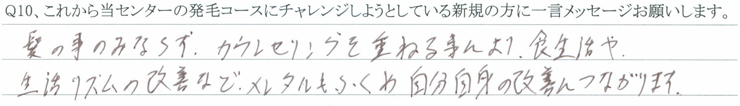 Q10、これから当センターの発毛コースにチャレンジしようとしている新規の方に一言メッセージお願いします。
髪の事のみならず、カウンセリングを重ねる事により、食生活や、
生活リズムの改善など、メンタルもふくめ自分自身の改善につながります。